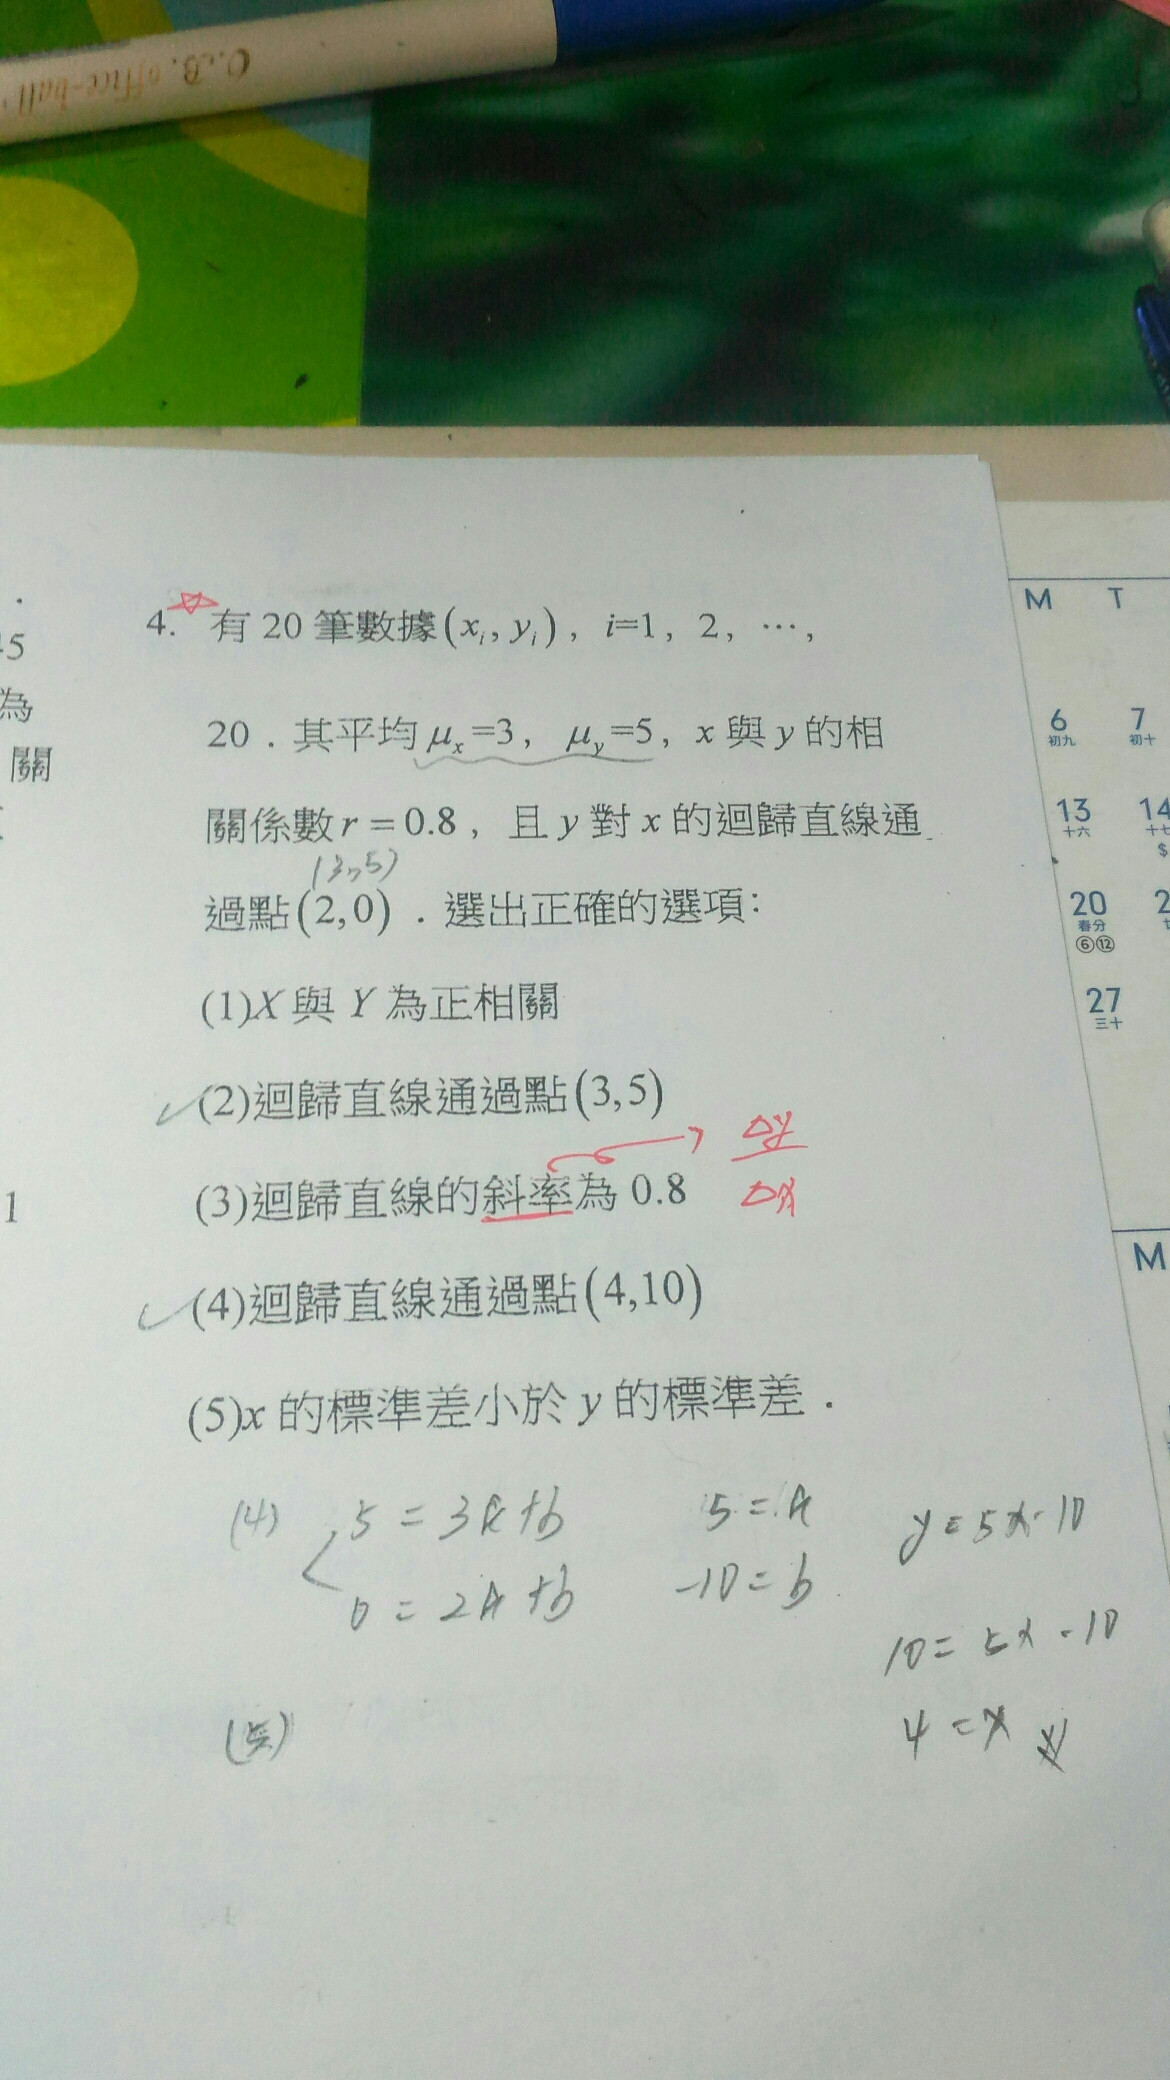 O.B. office-ball
4. 有 20 筆數據(xᵢ, yᵢ), i=1, 2, ⋯,
20．其平均 μₓ=3, μᵧ=5, x 與 y 的相
關係數 r = 0.8, 且 y 對 x 的迴歸直線通
(3,5)
過點(2,0)．選出正確的選項:
(1)X 與 Y 為正相關
✓(2)迴歸直線通過點(3,5)
(3)迴歸直線的斜率為 0.8
Δy
Δx
✓(4)迴歸直線通過點(4,10)
(5)x 的標準差小於 y 的標準差．
(4) 5 = 3a+b 5 = a y = 5x-10
0 = 2a+b -10 = b
10 = 5x-10
4 = x
(5)
45
為
關
1
M T
6 7
初九 初十
13 14
十六 十七
$
20 2
春分
⑥⑫
27
三十
M